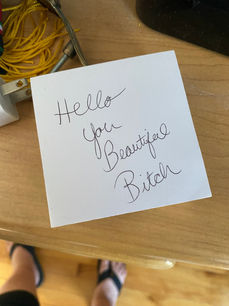 Hello
You
Beautiful
Bitch